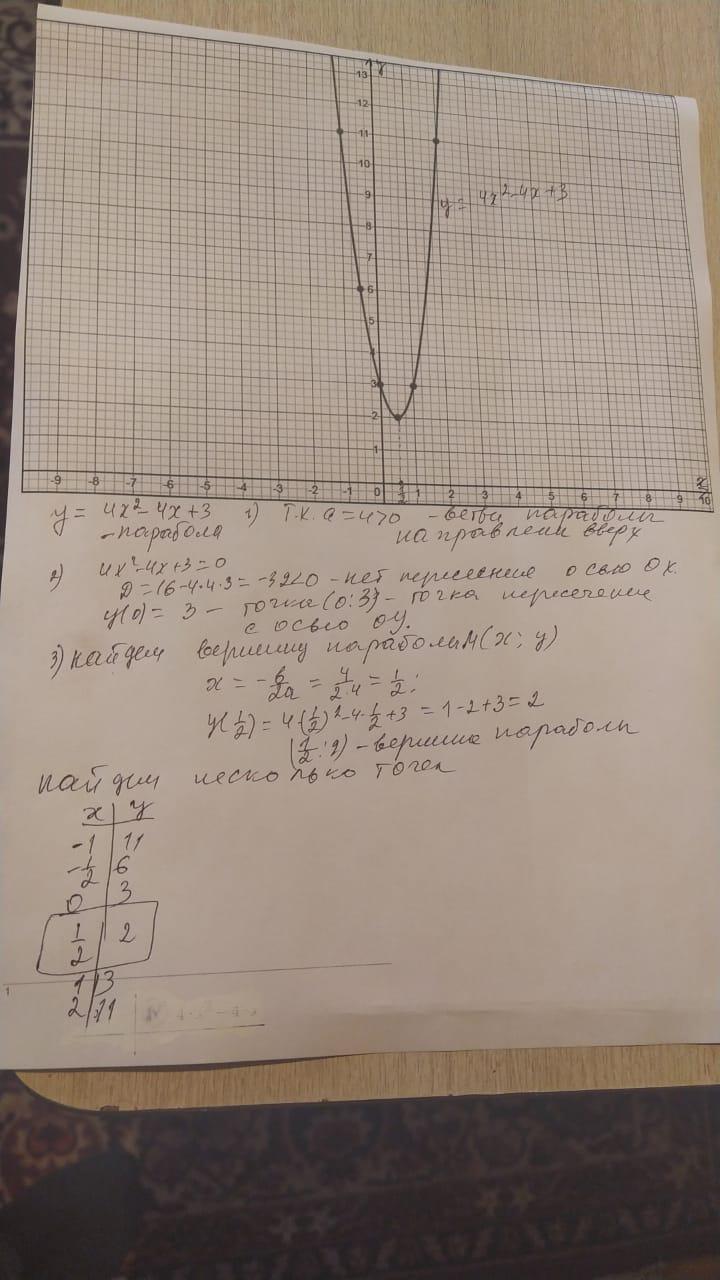 y
13
12
11
10
9
8
7
6
5
4
3
2
1
y = 4x²-4x+3
-9 -8 -7 -6 -5 -4 -3 -2 -1 0 1/2 1 2 3 4 5 6 7 8 9 10
x
y = 4x²-4x+3 1) Т.К. a=4>0 - ветви параболы
- парабола направлены вверх
2) 4x²-4x+3=0
D=16-4·4·3=-32<0 - нет пересечения с осью OX.
y(0)= 3 - точка (0;3) - точка пересечения
с осью OY.
3) найдем вершину параболы M(x; y)
x = -b/2a = 4/2·4 = 1/2;
y(1/2)=4·(1/2)²-4·1/2+3 = 1-2+3=2
(1/2;2) - вершина параболы
найдем несколько точек
x y
-1 11
-1/2 6
0 3
1/2 2
1 3
2 11